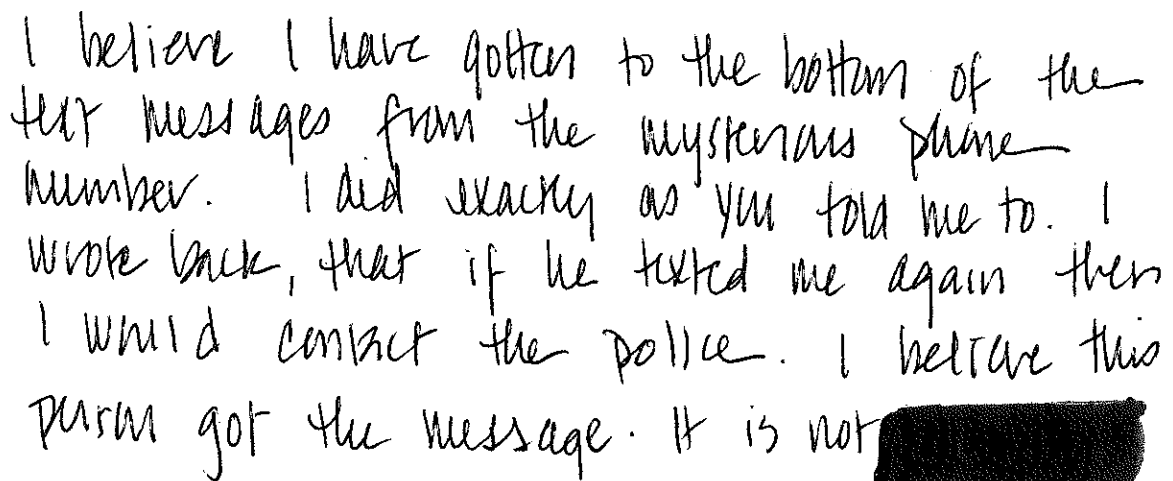 I believe I have gotten to the bottom of the
text messages from the mysterious phone
number. I did exactly as you told me to. I
wrote back, that if he texted me again then
I would contact the police. I believe this
person got the message. It is not